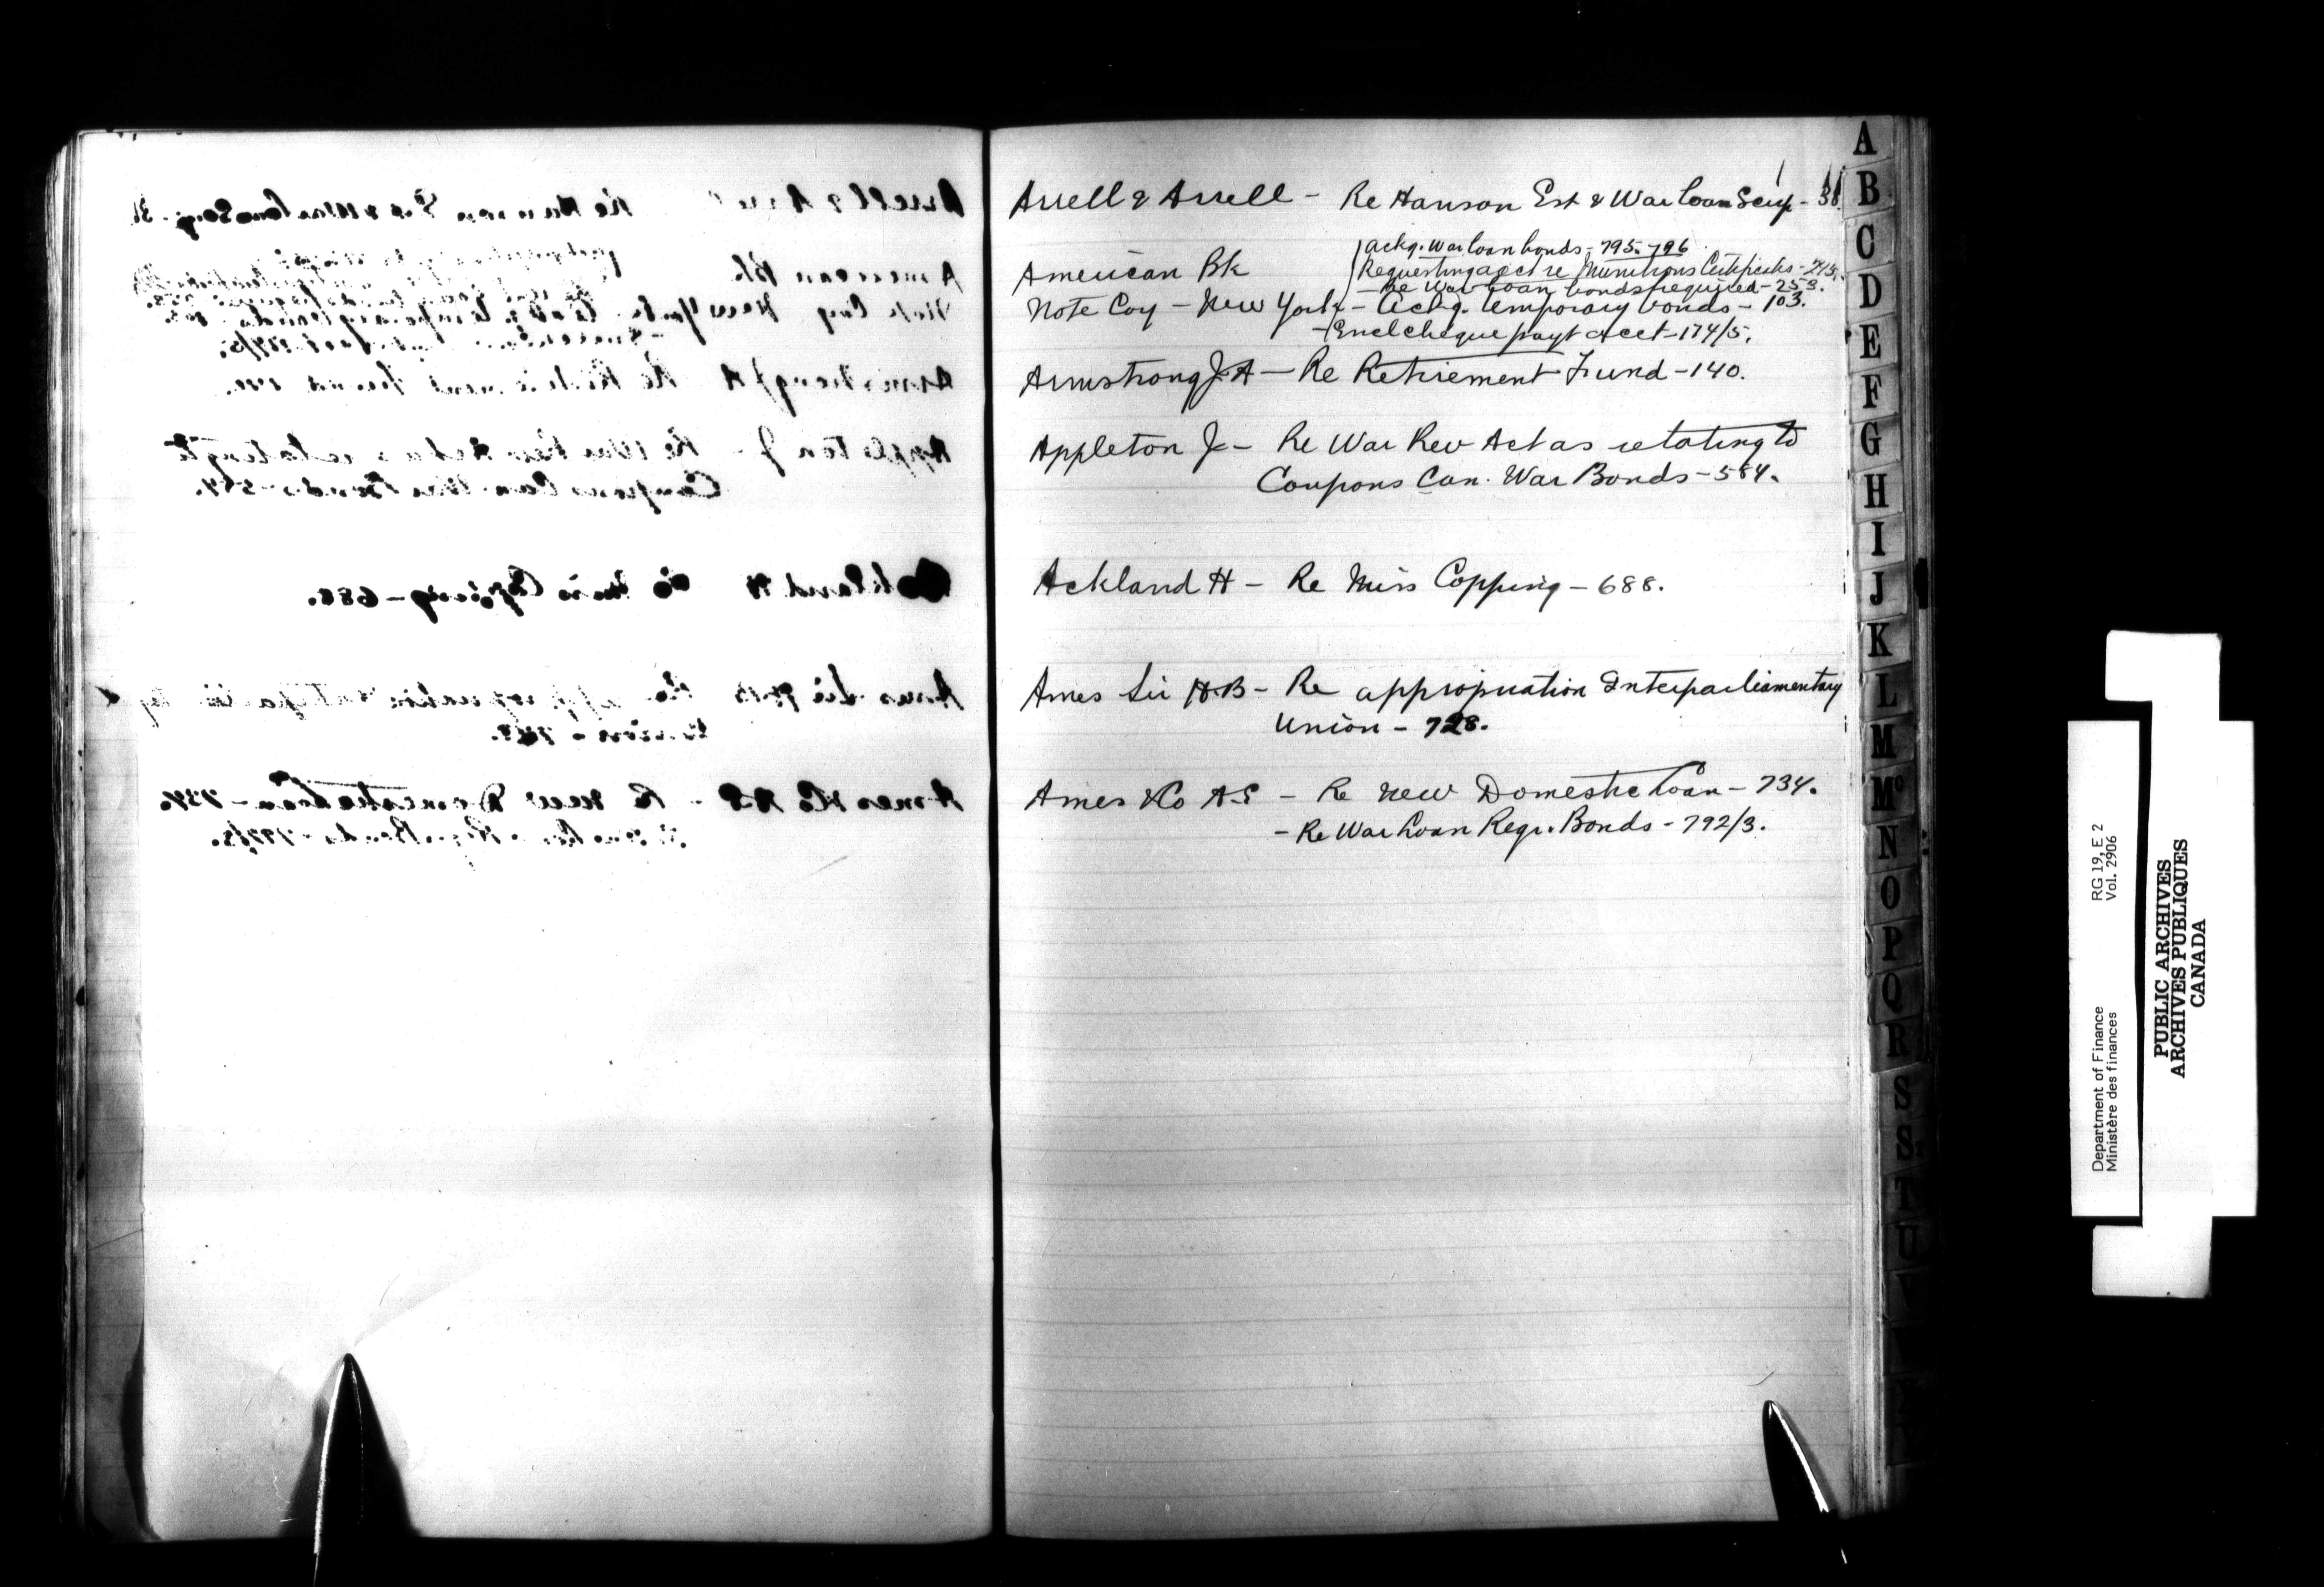 Arrell & Arrell - Re Hanson Est & War Loan Scrip - 38.
American Bk
Ackg. War loan bonds - 795-796
Requesting acct re Munitions Certificates - 215.
- Re War Loan bonds required - 253.
Note Coy - New York - Ackg. temporary bonds - 103.
- Encl cheque payt acct - 174/5.
Armstrong J A - Re Retirement Fund - 140.
Appleton J - Re War Rev Act as relating to
Coupons Can. War Bonds - 584.
Ackland H - Re Miss Copping - 688.
Ames Sir H.B - Re appropriation Interparliamentary
Union - 728.
Ames & Co A.E - Re New Domestic Loan - 734.
- Re War Loan Regr. Bonds - 792/3.
A
B
C
D
E
F
G
H
I
J
K
L
M
Mc
N
O
P
Q
R
S
S
T
U
V
Department of Finance RG 19, E 2
Ministère des finances Vol. 2906
PUBLIC ARCHIVES
ARCHIVES PUBLIQUES
CANADA